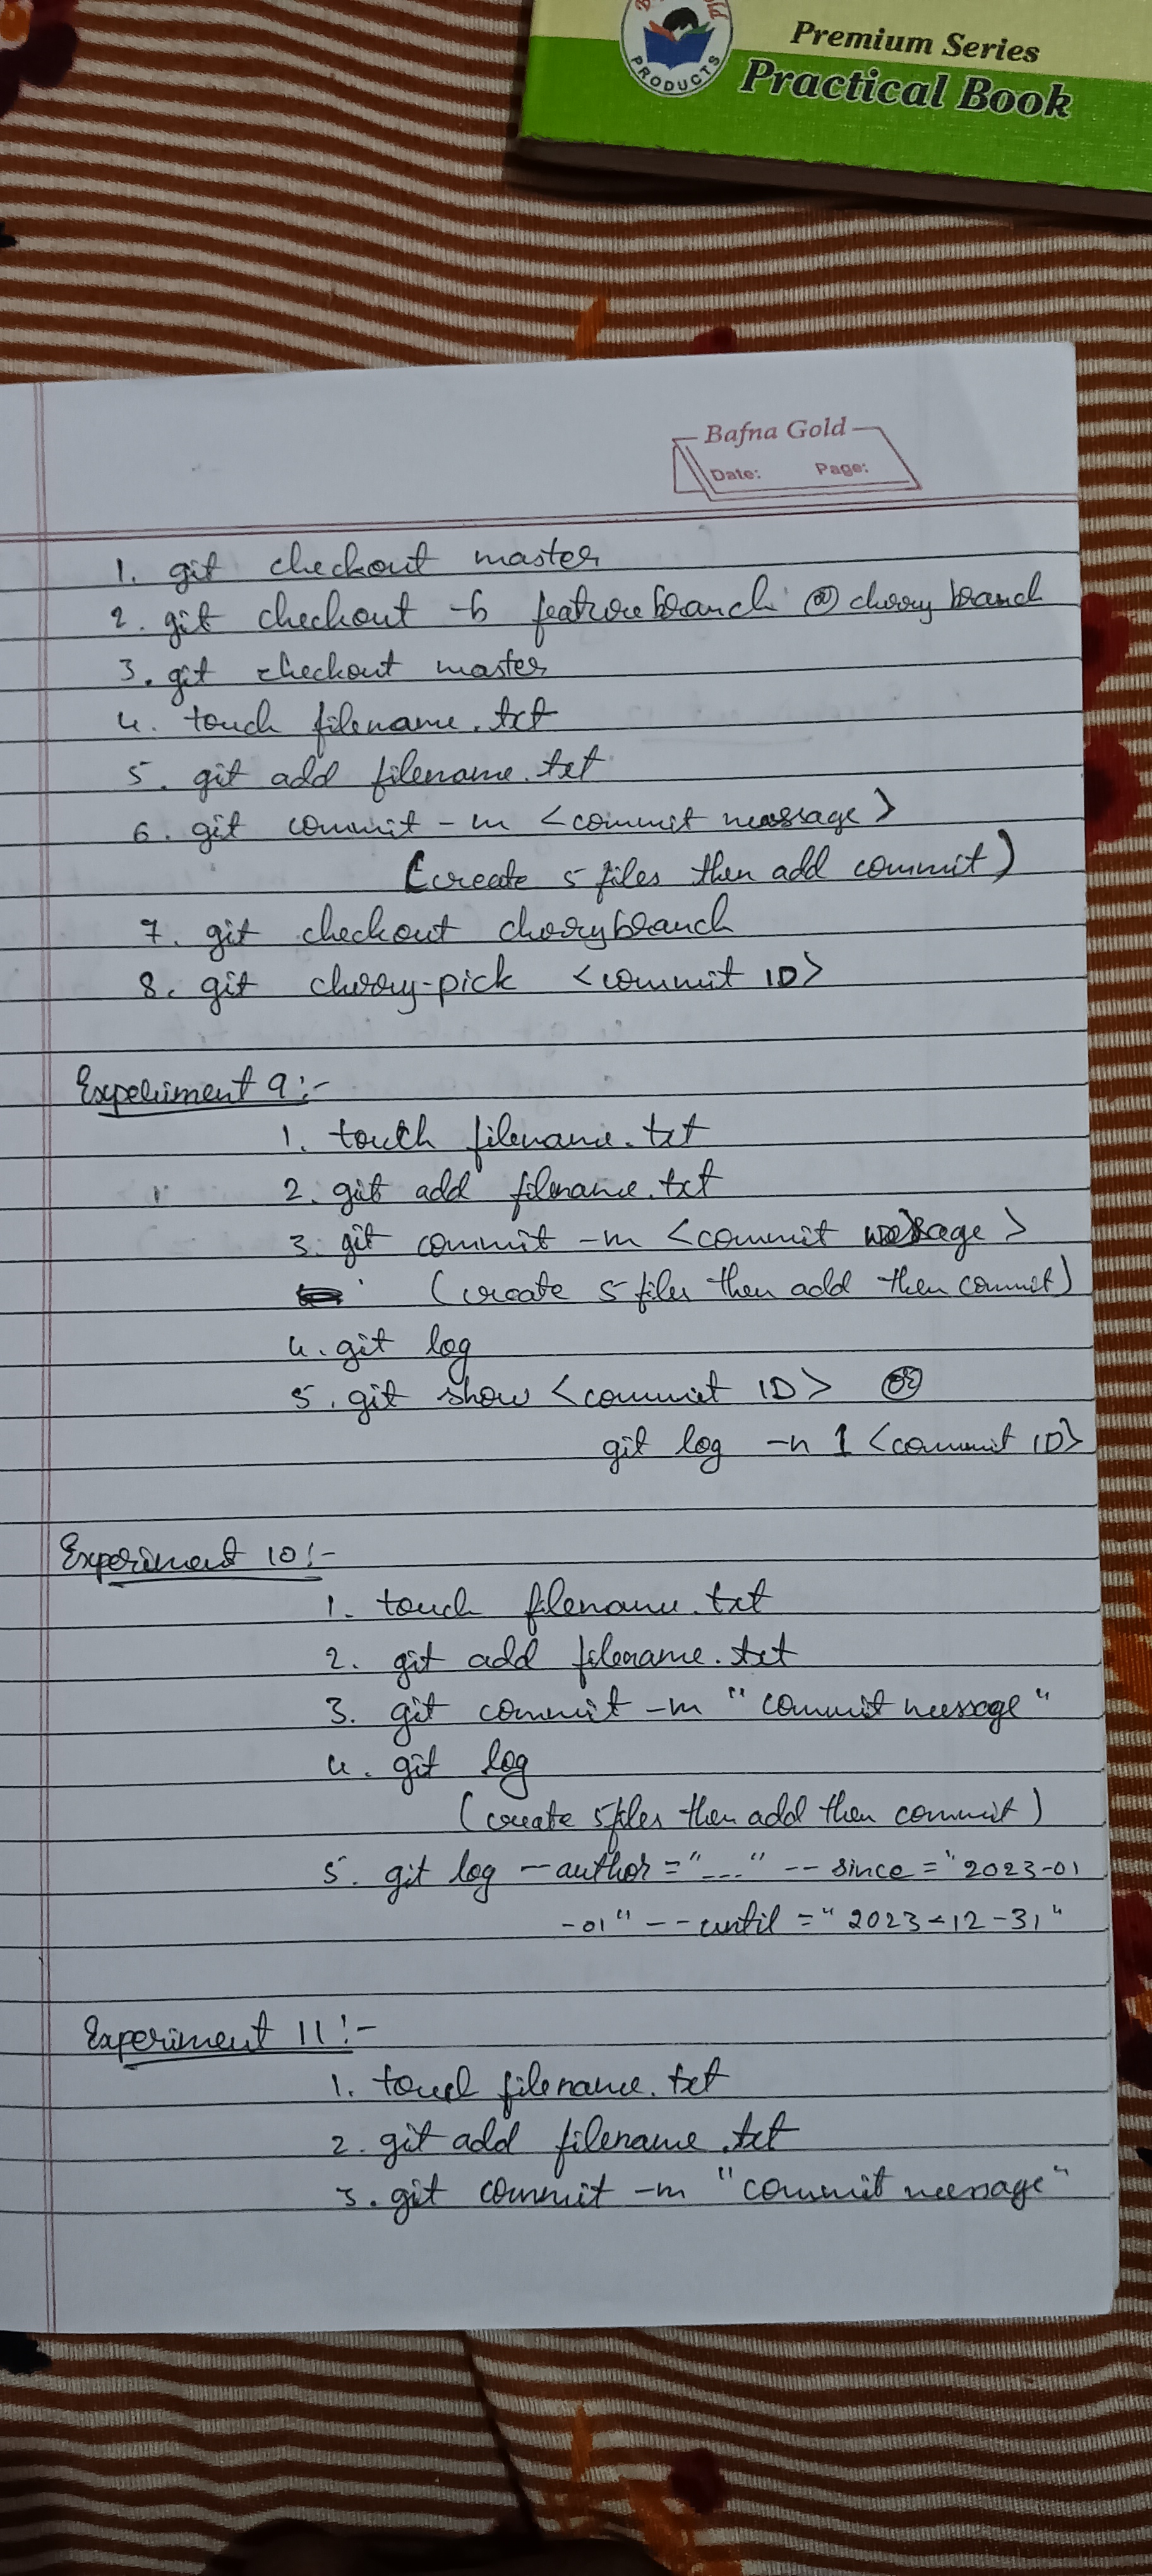 PRODUCTS
Premium Series
Practical Book
Bafna Gold
Date: Page:
1. git checkout master
2. git checkout -b featurebranch (or) cherry branch
3. git checkout master
4. touch filename.txt
5. git add filename.txt
6. git commit -m <commit message>
(create 5 files then add commit)
7. git checkout cherrybranch
8. git cherry-pick <commit ID>
Experiment 9:-
1. touch filename.txt
2. git add filename.txt
3. git commit -m <commit message>
(create 5 files then add then commit)
4. git log
5. git show <commit ID> (or)
git log -n 1 <commit ID>
Experiment 10:-
1. touch filename.txt
2. git add filename.txt
3. git commit -m "commit message"
4. git log
(create 5 files then add then commit)
5. git log --author="---" --since="2023-01
-01" --until="2023-12-31"
Experiment 11:-
1. touch filename.txt
2. git add filename.txt
3. git commit -m "commit message"